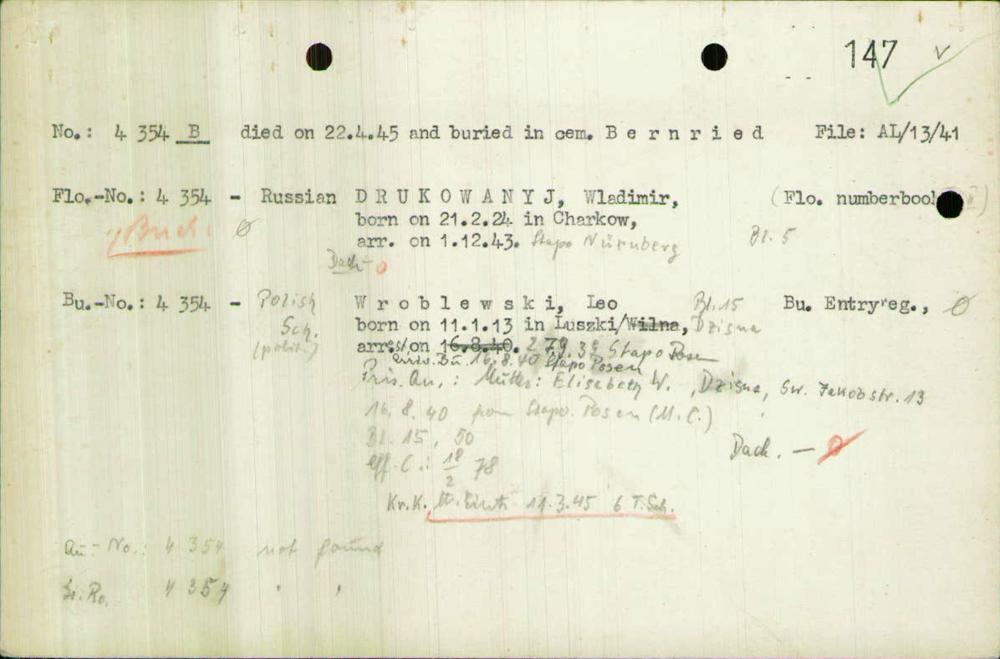 147 v
No.: 4 354 B died on 22.4.45 and buried in cem. B e r n r i e d File: AL/13/41
Flo.-No.: 4 354 - Russian D R U K O W A N Y J, Wladimir, (Flo. numberbook
born on 21.2.24 in Charkow,
arr. on 1.12.43. Stapo Nürnberg Bl. 5
Dach
Bu.-No.: 4 354 - Polish W r o b l e w s k i, Leo Bl. 15 Bu. Entry reg.,
Sch. born on 11.1.13 in Luszki/Wilna, Dzisna
(polit.) arrest on 16.8.40. 2.7.9.39 Stapo Posen
Bu. 16.8.40 Stapo Posen
Pris. Qu. : Mutter: Elisabeth W., Dzisna, Sw. Jakobstr. 13
16.8.40 from Stapo. Posen (M.C.)
Bl. 15, 50
Dach. —
eff. C.: 18/2 78
Kr.K. 11.3.45 6 T. Sch.
Au-No.: 4 354 not found
4 354 " "